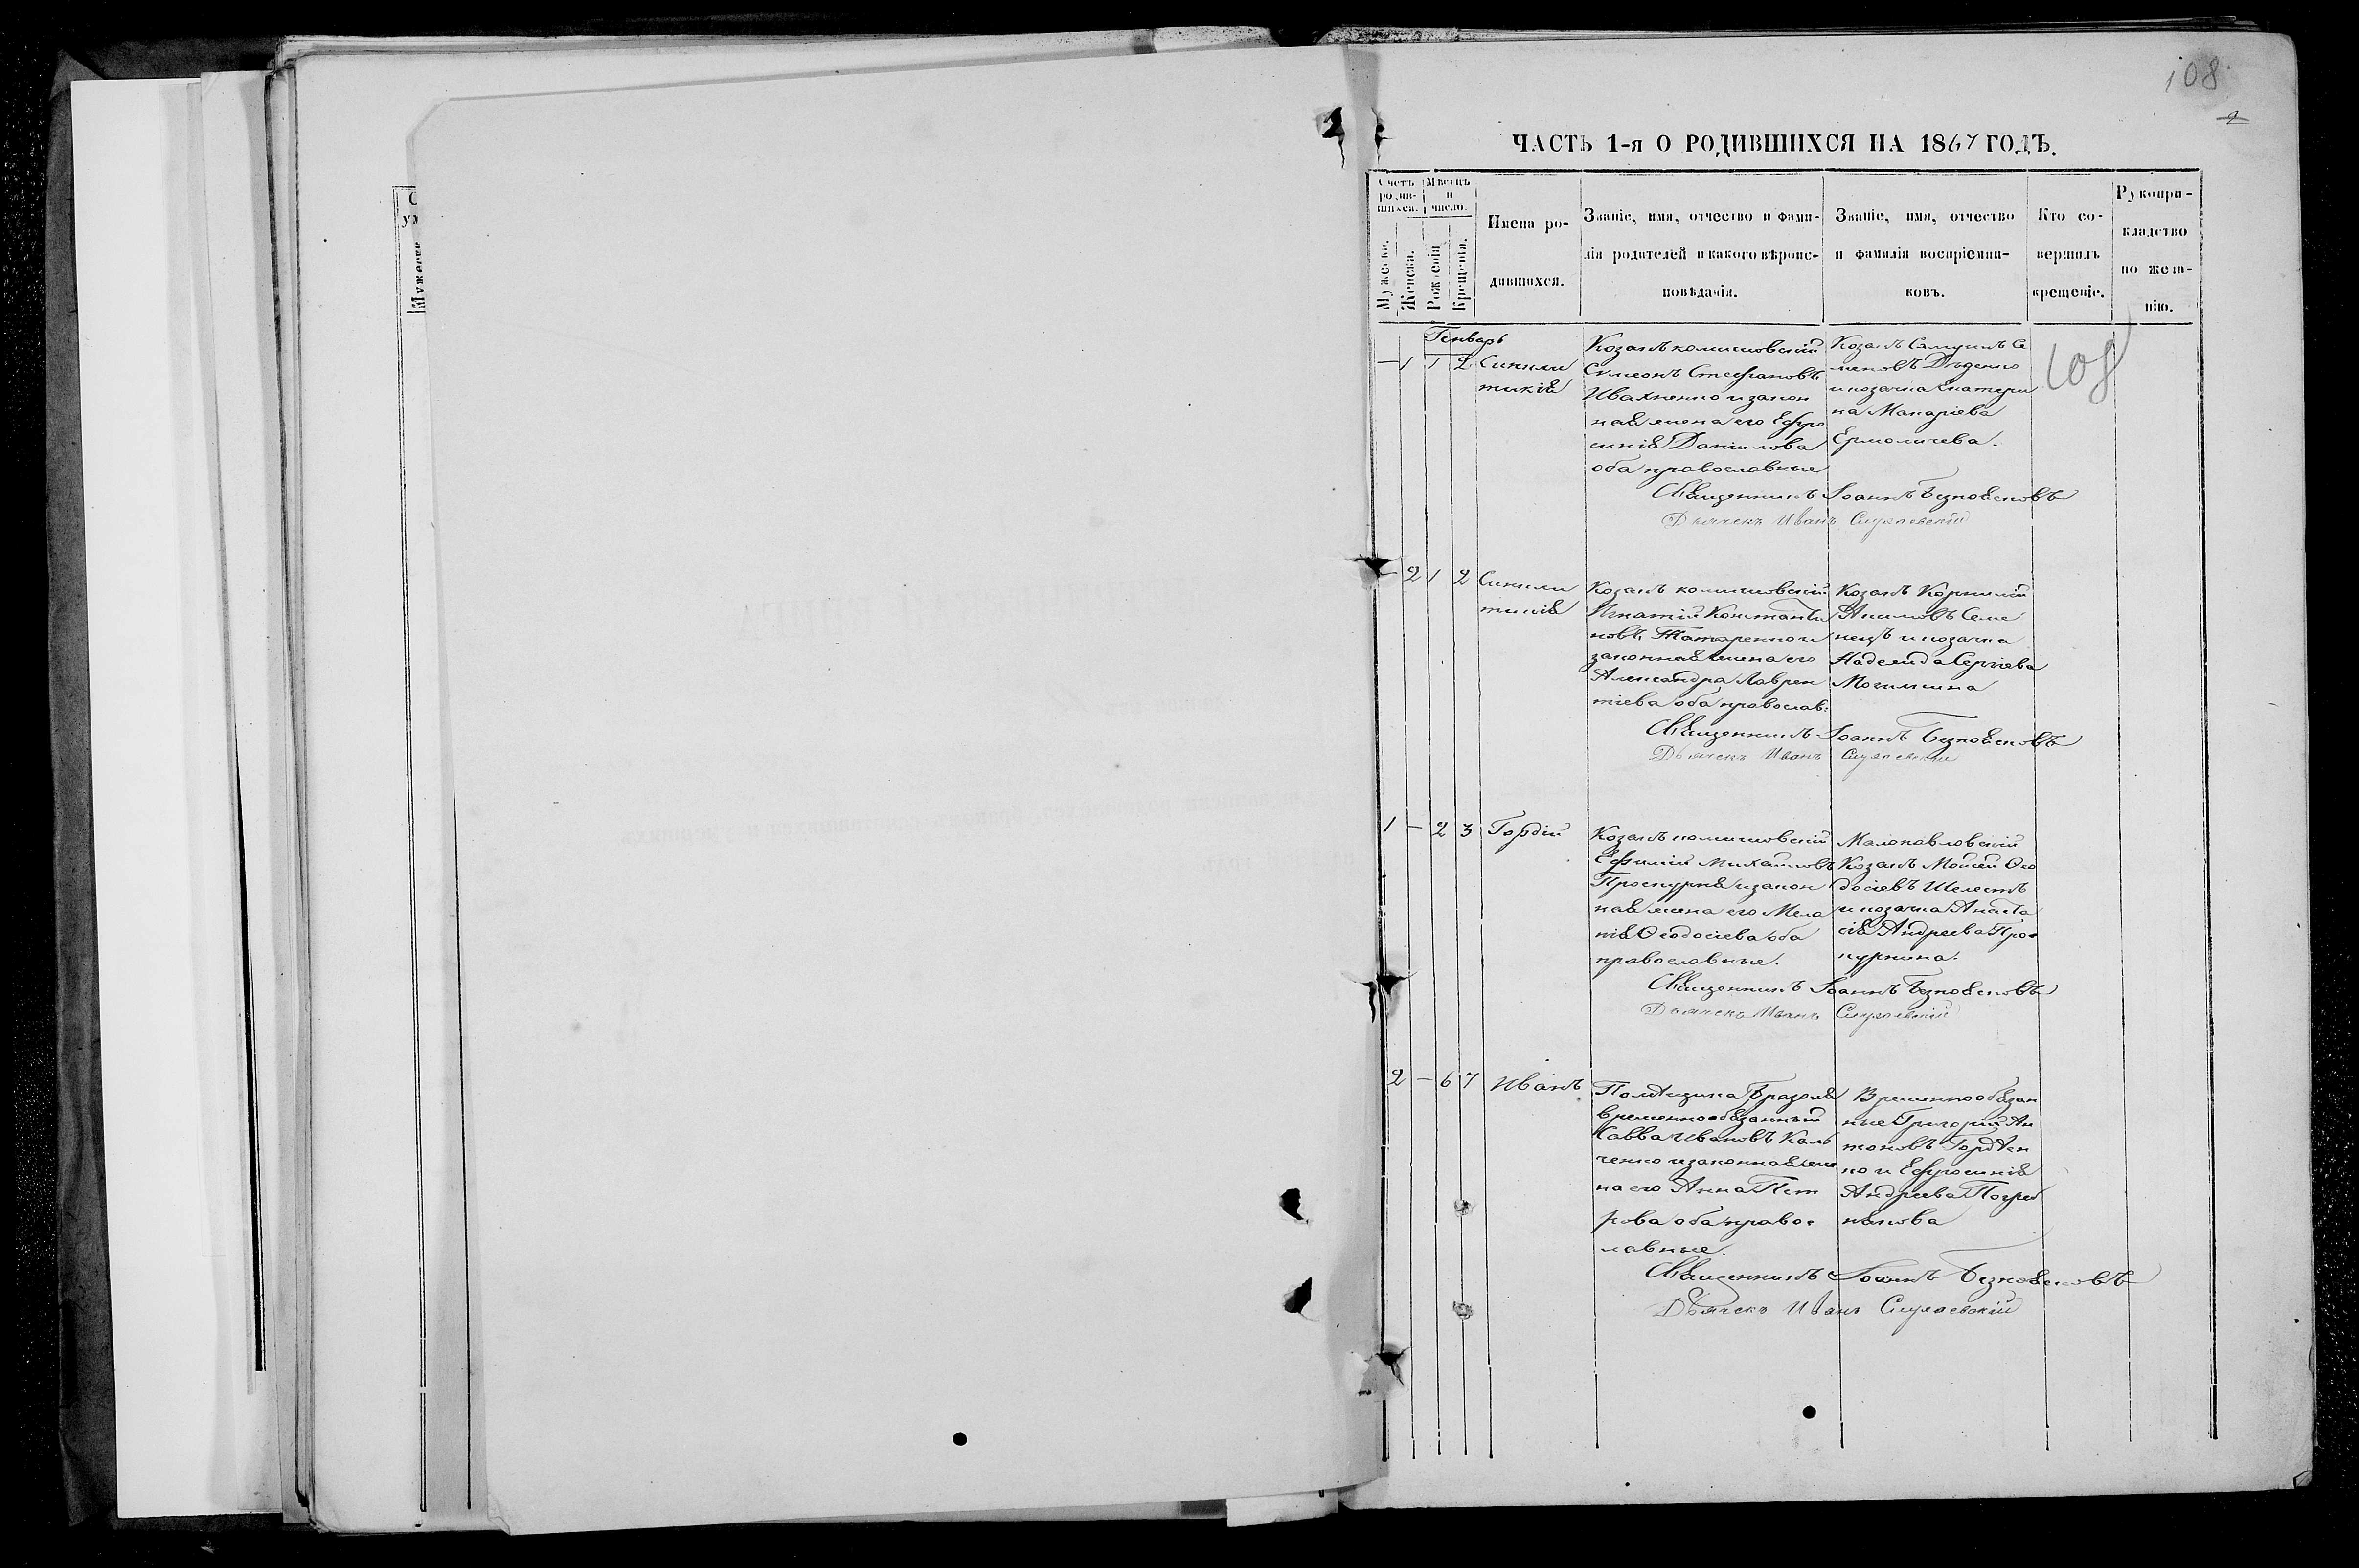 108
ЧАСТЬ 1-я О РОДИВШИХСЯ НА 1867 ГОДЪ.
Счетъ родив-шихся.
Мужеска.
Женска.
Мѣсяцъ и число.
Рожденія
Крещенія.
Имена ро-
дившихся.
Званіе, имя, отчество и фами-
лія родителей и какого вѣроис-
повѣданія.
Званіе, имя, отчество
и фамилія воспріемни-
ковъ.
Кто со-
вершилъ
крещеніе.
Рукопри-
кладство
по жела-
нію.
Генварь
— 1 1 2 Синкли
тикія
Козакъ комишовскій
Сѵмеонъ Стефановъ
Ивахненко и закон
ная жена его Ефро
синія Даніилова
оба православные
Козакъ Самуилъ Се
меновъ Дѣденко
и козачка Екатери
на Макаріева
Ермоличева.
108
Священникъ Іоаннъ
Дьячекъ Иванъ
— 2 1 2 Синкли
тикія
Козакъ комишовскій
Игнатій Константи
новъ Татаренко и
законная жена его
Александра Лаврен
тіева оба православ:
Козакъ Корнилій
Акимовъ Семе
нецъ и козачка
Надежда Сергіева
Могилина
Священникъ Іоаннъ
Дьячекъ Иванъ
1 — 2 3 Гордій
Козакъ комишовскій
Ефимій Михайловъ
Проскурня и закон
ная жена его Мела
нія Ѳеодосіева оба
православные.
Малопавловскій
Козакъ Мойсей Ѳео
досіевъ Шелестъ
и козачка Анаста
сія Андреева Прос
курнина.
Священникъ Іоаннъ
Дьячекъ Иванъ
2 — 6 7 Иванъ
Помѣщика Бразоля
временнообязанный
Савва Ивановъ Каль
ченко и законная же
на его Анна Пет
рова оба правос
лавные.
Временнообязан
ные Григорій Ан
тоновъ Гордѣен
ко и Ефросинія
Андреева
Священникъ Іоаннъ
Дьячекъ Иванъ